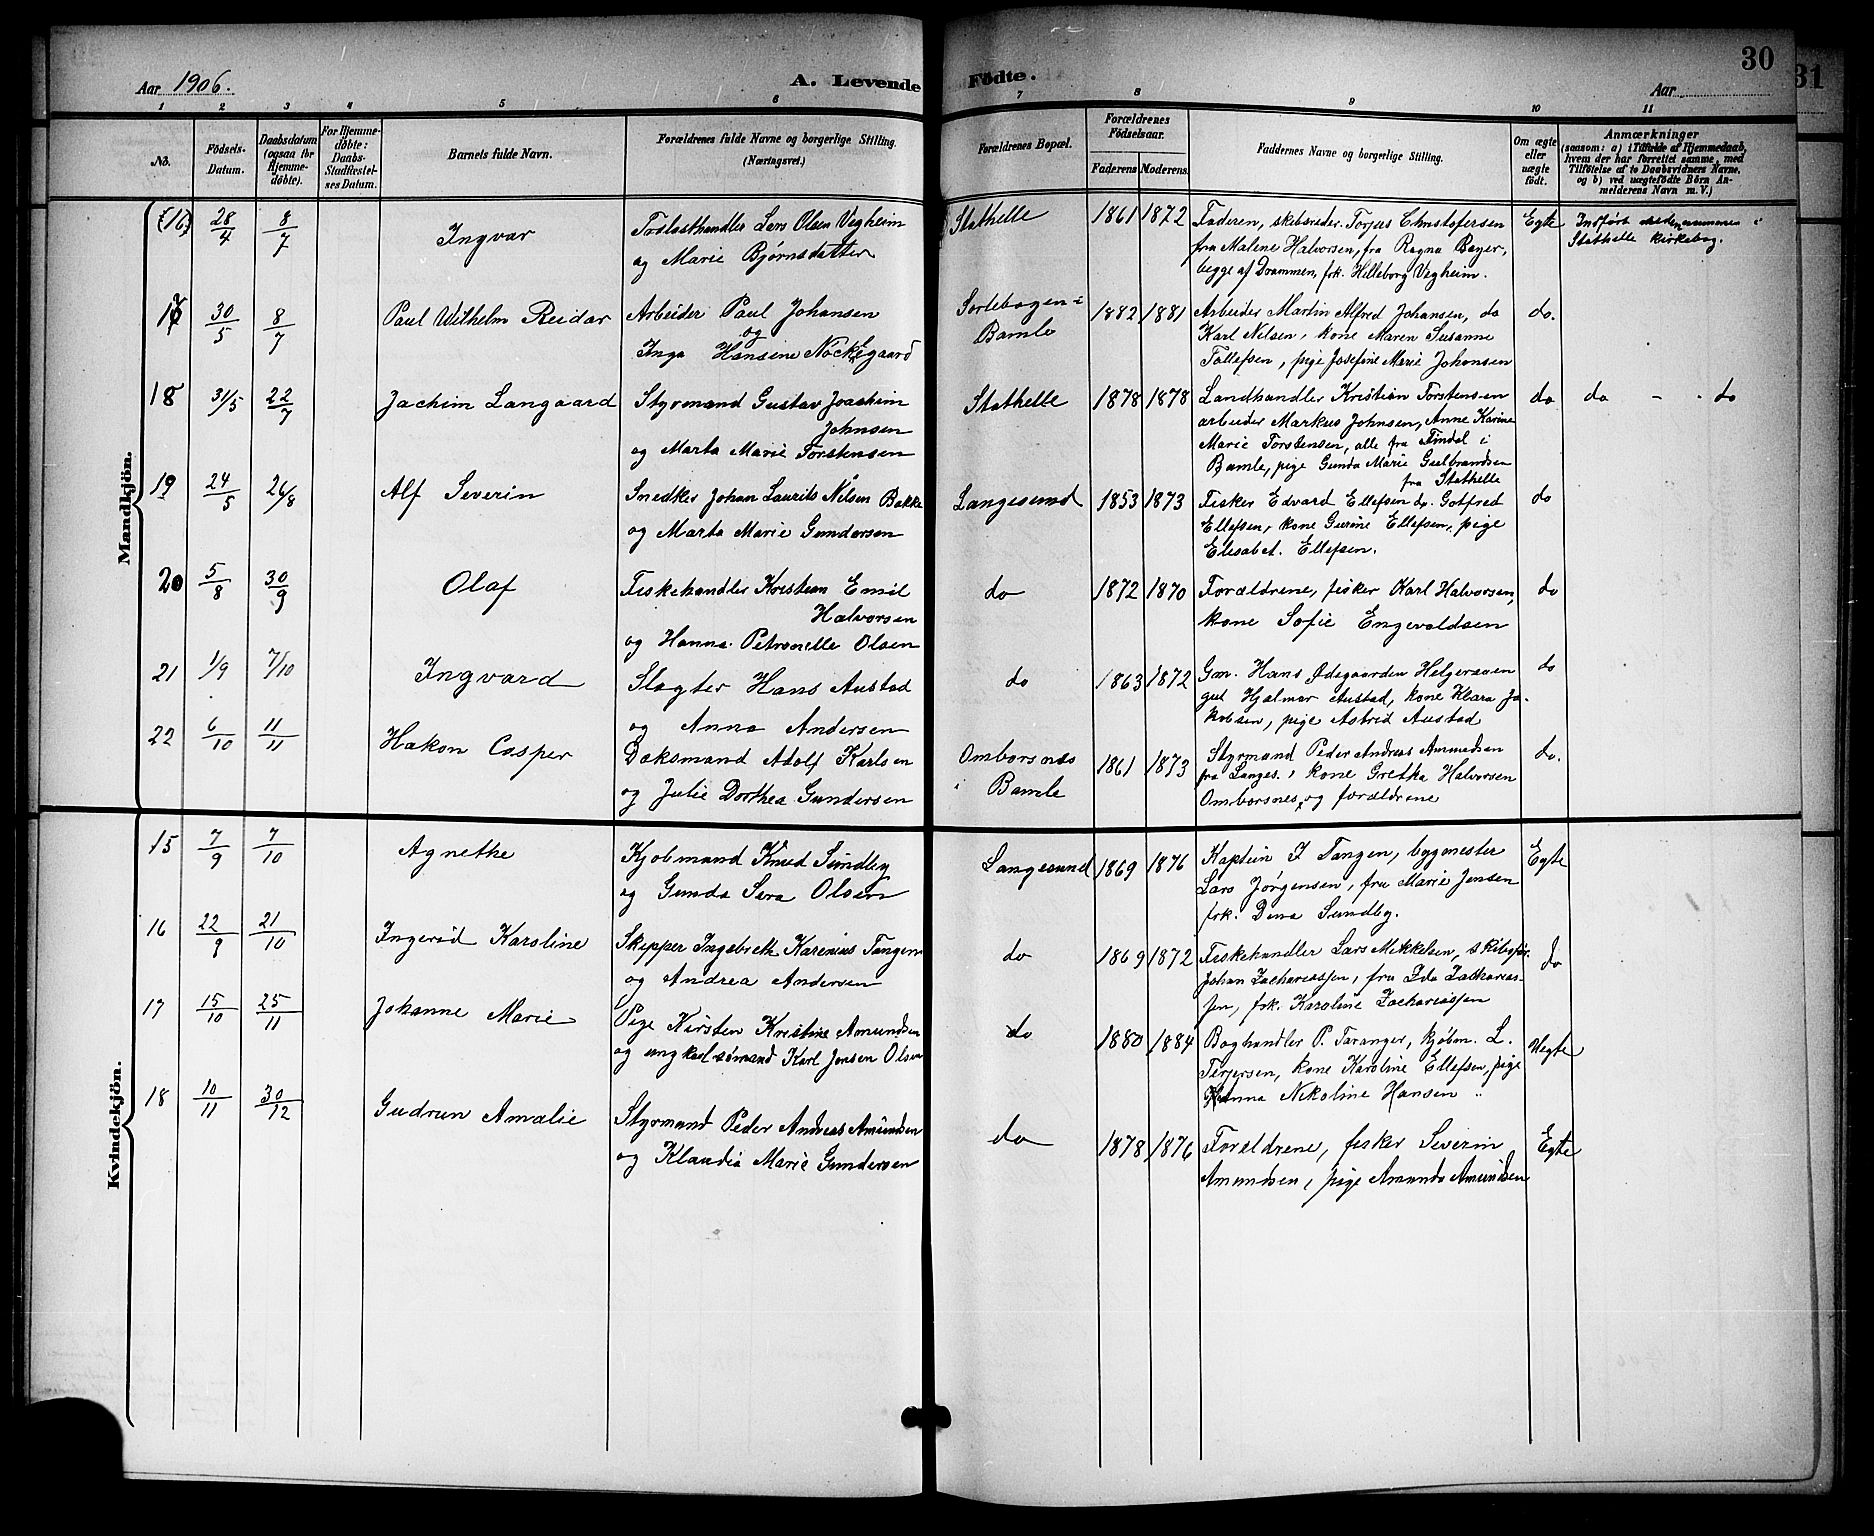 30
31
Aar 1906.
A. Levende Fødte.
Aar
1 2 3 4 5 6 7 8 9 10 11
No.
Fødsels-
Datum.
Daabsdatum
(ogsaa for
Hjemme-
døbte).
For Hjemme-
døbte:
Daabs-
Stadfæstel-
ses Datum.
Barnets fulde Navn.
Forældrenes fulde Navne og borgerlige Stilling.
(Næringsvei.)
Forældrenes Bopæl.
Forældrenes
Fødselsaar.
Faderens. Moderens.
Faddernes Navne og borgerlige Stilling.
Om ægte
eller
uægte
født.
Anmærkninger
(saasom: a) i Tilfælde af Hjemmedaab,
hvem der har forrettet samme, med
Tilføielse af to Daabsvidners Navne,
og b) ved uægtefødte Børn An-
melderens Navn m. V.)
Mandkjön.
(16) 28/4 8/7 Ingvar
Trælasthandler Lars Olsen Vegheim
og Marie Bjørnsdatter
Stathelle 1861 1872
Faderen, skibsreder Torjus Christofersen
fru Malene Halvorsen, frk Ragna Bayer,
begge af Drammen, frk. Hilleborg Vegheim.
Egte
Indført under nummer i
Stathelle kirkebog.
30/5 8/7 Paul Wilhelm Reidar
Arbeider Paul Johansen
og
Inga Hansine Nockegaard
Sortebogen i
Bamle
1882 1881
Arbeider Martin Alfred Johansen, do
Karl Nilsen, kone Maren Susanne
Tollefsen, pige Josefine Marie Johansen
do.
18 31/5 22/7 Jachim Langaard
Styrmand Gustav Joachim
Johnsen
og Marta Marie Torstensen
Stathelle 1878 1878
Landhandler Kristian Torstensen
arbeider Markus Johnsen, Anne Karine
Marie Torstensen, alle fra Findal i
Bamle, pige Gunda Marie Gulbrandsen
fra Stathelle
do do - - do
19 24/5 26/8 Alf Severin
Snedker Johan Laurits Nilsen Bakke
og Marta Marie Gundersen
Langesund 1853 1873
Fisker Edvard Ellefsen do. Gotfred
Ellefsen, kone Gurine Ellefsen, pige
Elisabet Ellefsen.
do
20 5/8 30/9 Olaf
Fiskehandler Kristian Emil
Halvorsen
og Hanna Petronelle Olsen
do 1872 1870
Forældrene, fisker Karl Halvorsen,
kone Sofie Engevaldsen
do
21 1/9 7/10 Ingvard
Slagter Hans Austad
og Anna Andersen
do 1863 1872
Gm. Hans Ødegaarden Helgeraaen
gut Hjalmar Austad, kone Klara Ja-
kobsen, pige Astrid Austad
do
22 6/10 11/11 Hakon Casper
Doksmand Adolf Karlsen
og Julie Dorthea Gundersen
Omborsnæs
i Bamle
1861 1873
Styrmand Peder Andreas Amundsen
fra Langes., kone Grethe Halvorsen
Omborsnes og forældrene
do.
Kvindekjön.
15 7/9 7/10 Agnethe
Kjøbmand Knud Sundby
og Gunda Sara Olsen
Langesund 1869 1876
Kaptein I Tangen, bygmester
Lars Jørgensen, fru Marie Jensen
frk. Dina Sundby.
Egte
16 22/9 21/10 Ingerid Karoline
Skipper Ingebreth Karenius Tangen
og Andrea Andersen
do 1869 1872
Fiskehandler Lars Mikkelsen, skibsfør.
Johan Zachariassen, fru Ida Zacharias-
sen, frk. Karoline Zachariassen
do
17 15/10 25/11 Johanne Marie
Pige Kirsten Kristine Amundsen
og ungkarl sømand Karl Jensen Olsen
do 1880 1884
Boghandler P. Taranger, kjøbm. L.
Terjersen, kone Karoline Ellefsen, pige
Hanna Nikoline Hansen
Uegte
18 10/11 30/12 Gudrun Amalie
Styrmand Peder Andreas Amundsen
og Klaudia Marie Gundersen
do 1878 1876
Forældrene, fisker Severin
Amundsen, pige Amanda Amundsen
Egte